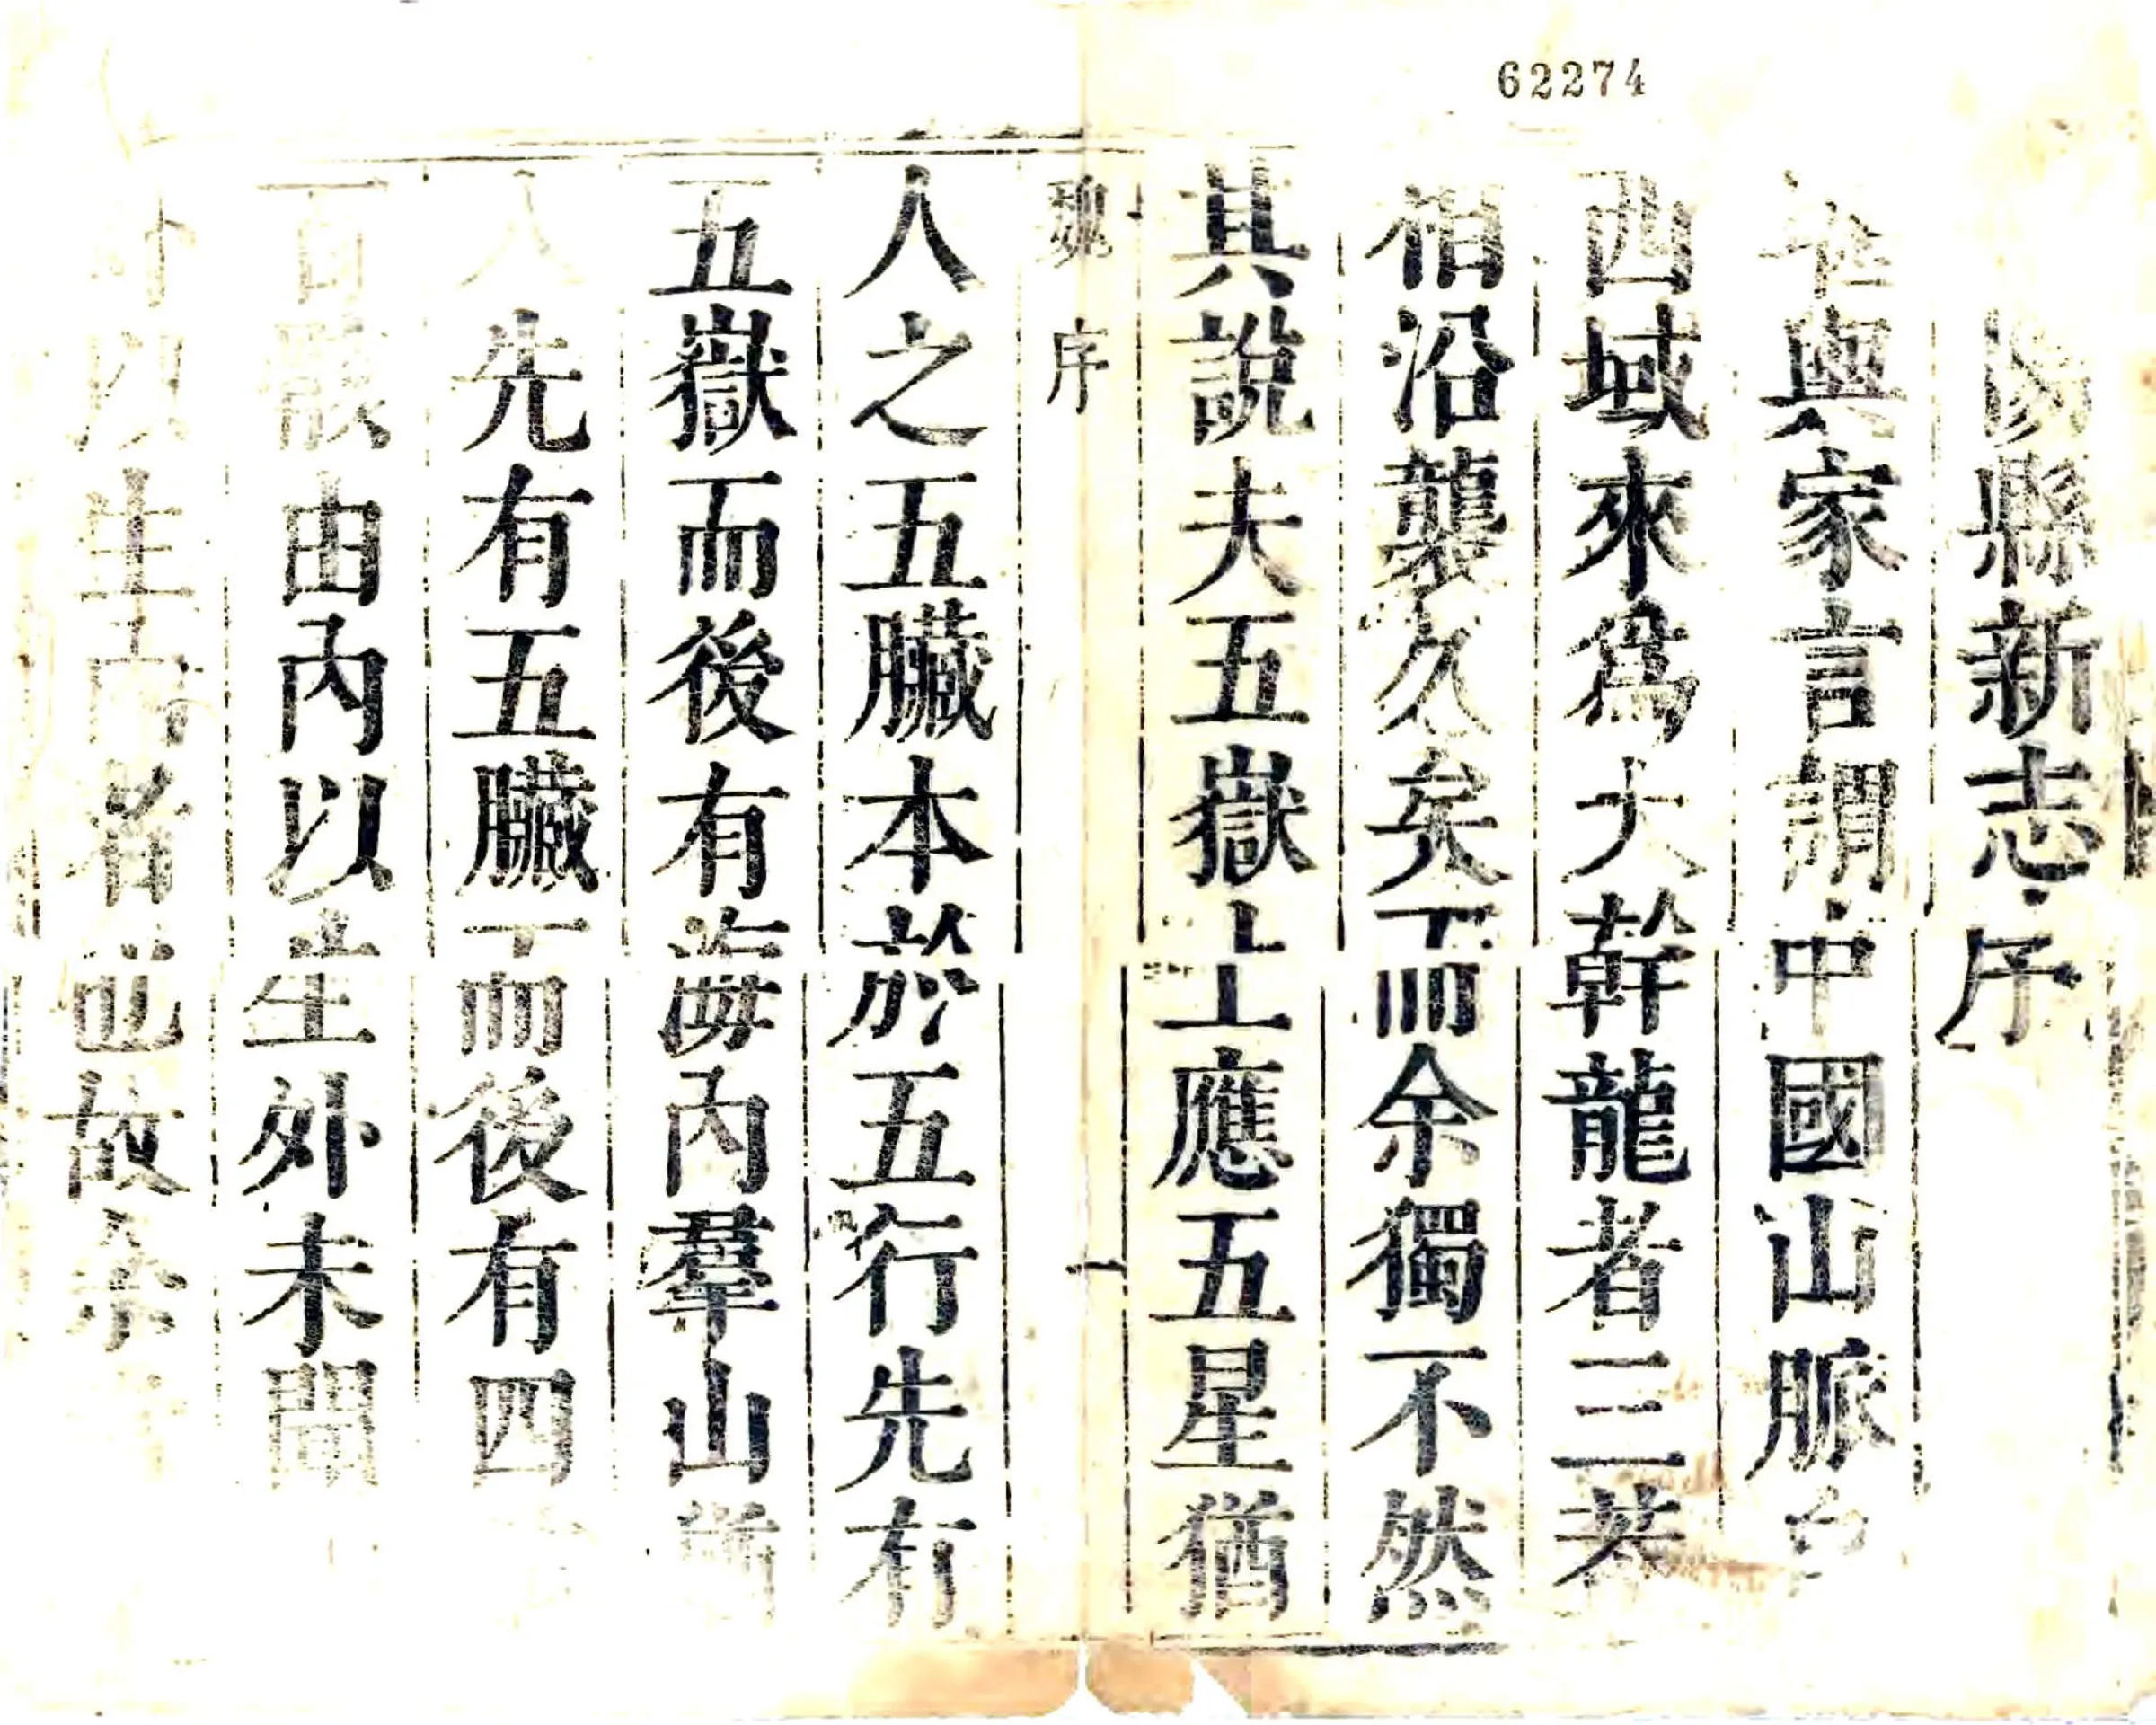 62274
縣新志序
輿家言謂中國山脈
西域來爲大幹龍者三其
相沿襲久矣而余獨不然
其說夫五嶽上應五星猶
魏序
一
人之五臟本於五行先有
五嶽而後有海內羣山猶
人先有五臟而後有四
百骸由內以生外未聞
外以生內者也故余